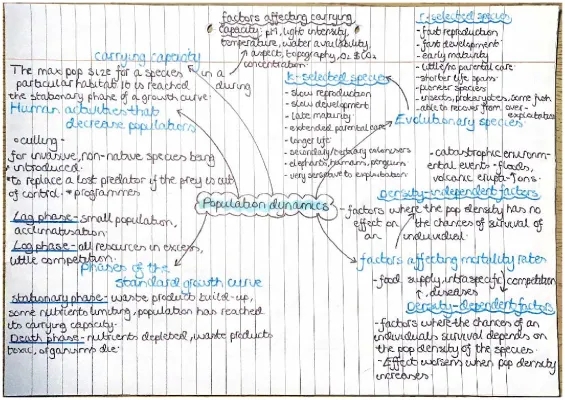 factors affecting carrying
capacity: pH, light intensity,
temperature, water availability,
↑ aspect, topography, O₂ & CO₂
concentration.
carrying capacity
The max pop size for a species in a
particular habitat. It is reached during
the stationary phase of a growth curve.
Human activities that
decrease populations
- culling -
for invasive, non-native species being
introduced.
*to replace a lost predator if the prey is out
of control. *programmes
Lag phase - small population,
acclimatisation.
Log phase - all resources in excess,
little competition.
Phases of the
standard growth curve
Stationary phase - waste products build-up,
some nutrients limiting, population has reached
its carrying capacity.
Death phase - nutrients depleted, waste products
toxic, organisms die.
Population dynamics
k-selected species
- slow reproduction
- slow development
- late maturity
- extended parental care
- longer life
- secondary/tertiary colonisers
- elephants, humans, penguins
- very sensitive to exploitation
r-selected species
- fast reproduction
- fast development
- early maturity
- little/no parental care
- shorter life span
- pioneer species
- insects, prokaryotes, some fish
- able to recover from over-
exploitation
Evolutionary species
- catastrophic environm-
ental events - floods,
volcanic erupt-ions.
Density-independent factors
- factors where the pop density has no
effect on the chances of survival of
an individual.
factors affecting mortality rates
- food supply, intraspecific competition
↑ diseases
Density-dependent factors
- factors where the chances of an
individuals survival depends on
the pop density of the species.
- Effect worsens when pop density
increases.